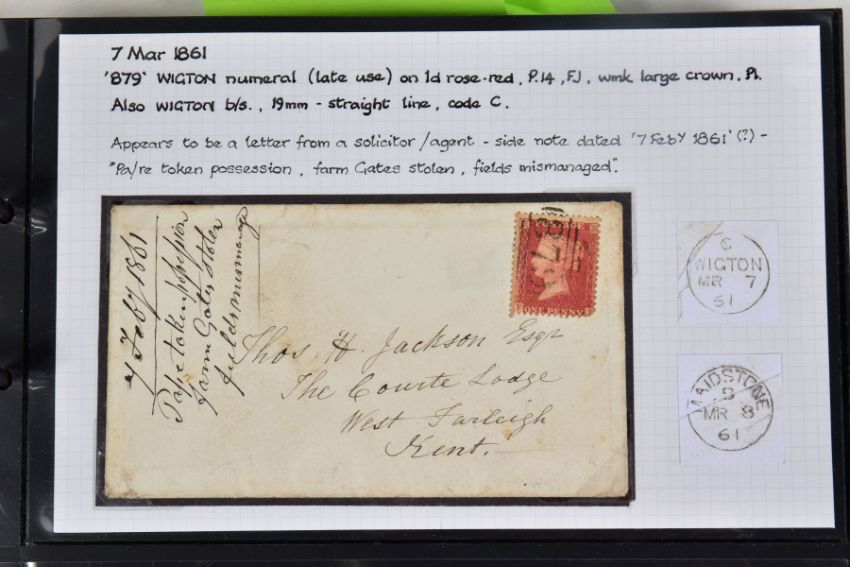 7 Mar 1861
'879' WIGTON numeral (late use) on 1d rose-red, P.14, FJ, wmk large crown, Pl.
Also WIGTON b/s., 19mm - straight line, code C.
Appears to be a letter from a solicitor/agent - side note dated '7 Feby 1861' (?) -
"Pa/re token possession, farm Gates stolen, fields mismanaged".
7 Feby 1861
Pape token possession
farm Gates stolen
fields mismanag
879
ONE PENNY
Thos H. Jackson Esqr
The Courte Lodge
West Farleigh
Kent.
C
WIGTON
MR 7
61
MAIDSTONE
MR 8
61